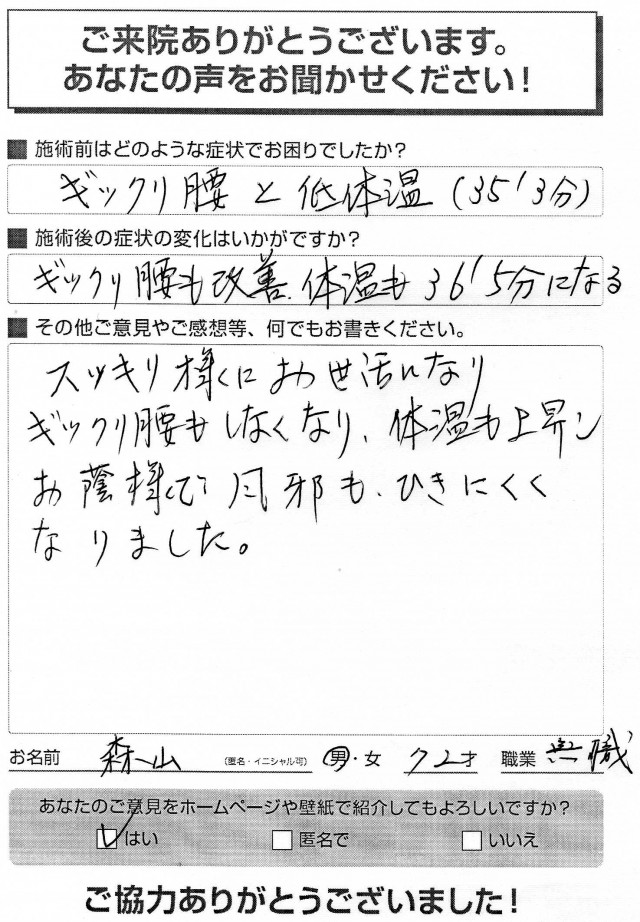 ご来院ありがとうございます。
あなたの声をお聞かせください！
■ 施術前はどのような症状でお困りでしたか？
ギックリ腰と低体温（35'3分）
■ 施術後の症状の変化はいかがですか？
ギックリ腰も改善.体温も36'5分になる
■ その他ご意見やご感想等、何でもお書きください。
スッキリ様くにお世活になり
ギックリ腰もしなくなり、体温も上昇し
お蔭様で風邪も、ひきにくく
なりました。
お名前 森山 （匿名・イニシャル可） 男・女 72才 職業 無職
あなたのご意見をホームページや壁紙で紹介してもよろしいですか？
はい 匿名で いいえ
ご協力ありがとうございました！